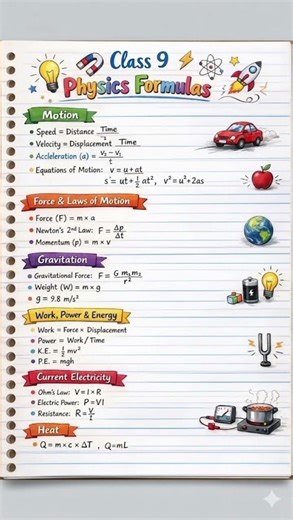 Class 9
Physics Formulas
Motion
Speed = Distance Time
Velocity = Displacement Time
Accleration (a) = v₂ - v₁ / t
Equations of Motion: v = u + at
s = ut + ½ at², v² = u² + 2as
Force & Laws of Motion
Force (F) = m × a
Newton's 2nd Law: F = Δp / Δt
Momentum (p) = m × v
Gravitation
Gravitational Force: F = G m₁ m₂ / r²
Weight (W) = m × g
g = 9.8 m/s²
Work, Power & Energy
Work = Force × Displacement
Power = Work / Time
K.E. = ½ mv²
P.E. = mgh
Current Electricity
Ohm's Law: V = I × R
Electric Power: P = VI
Resistance: R = V / I
Heat
Q = m × c × ΔT, Q = mL